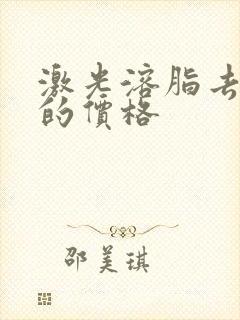 激光溶脂去
的價格
邵美琪